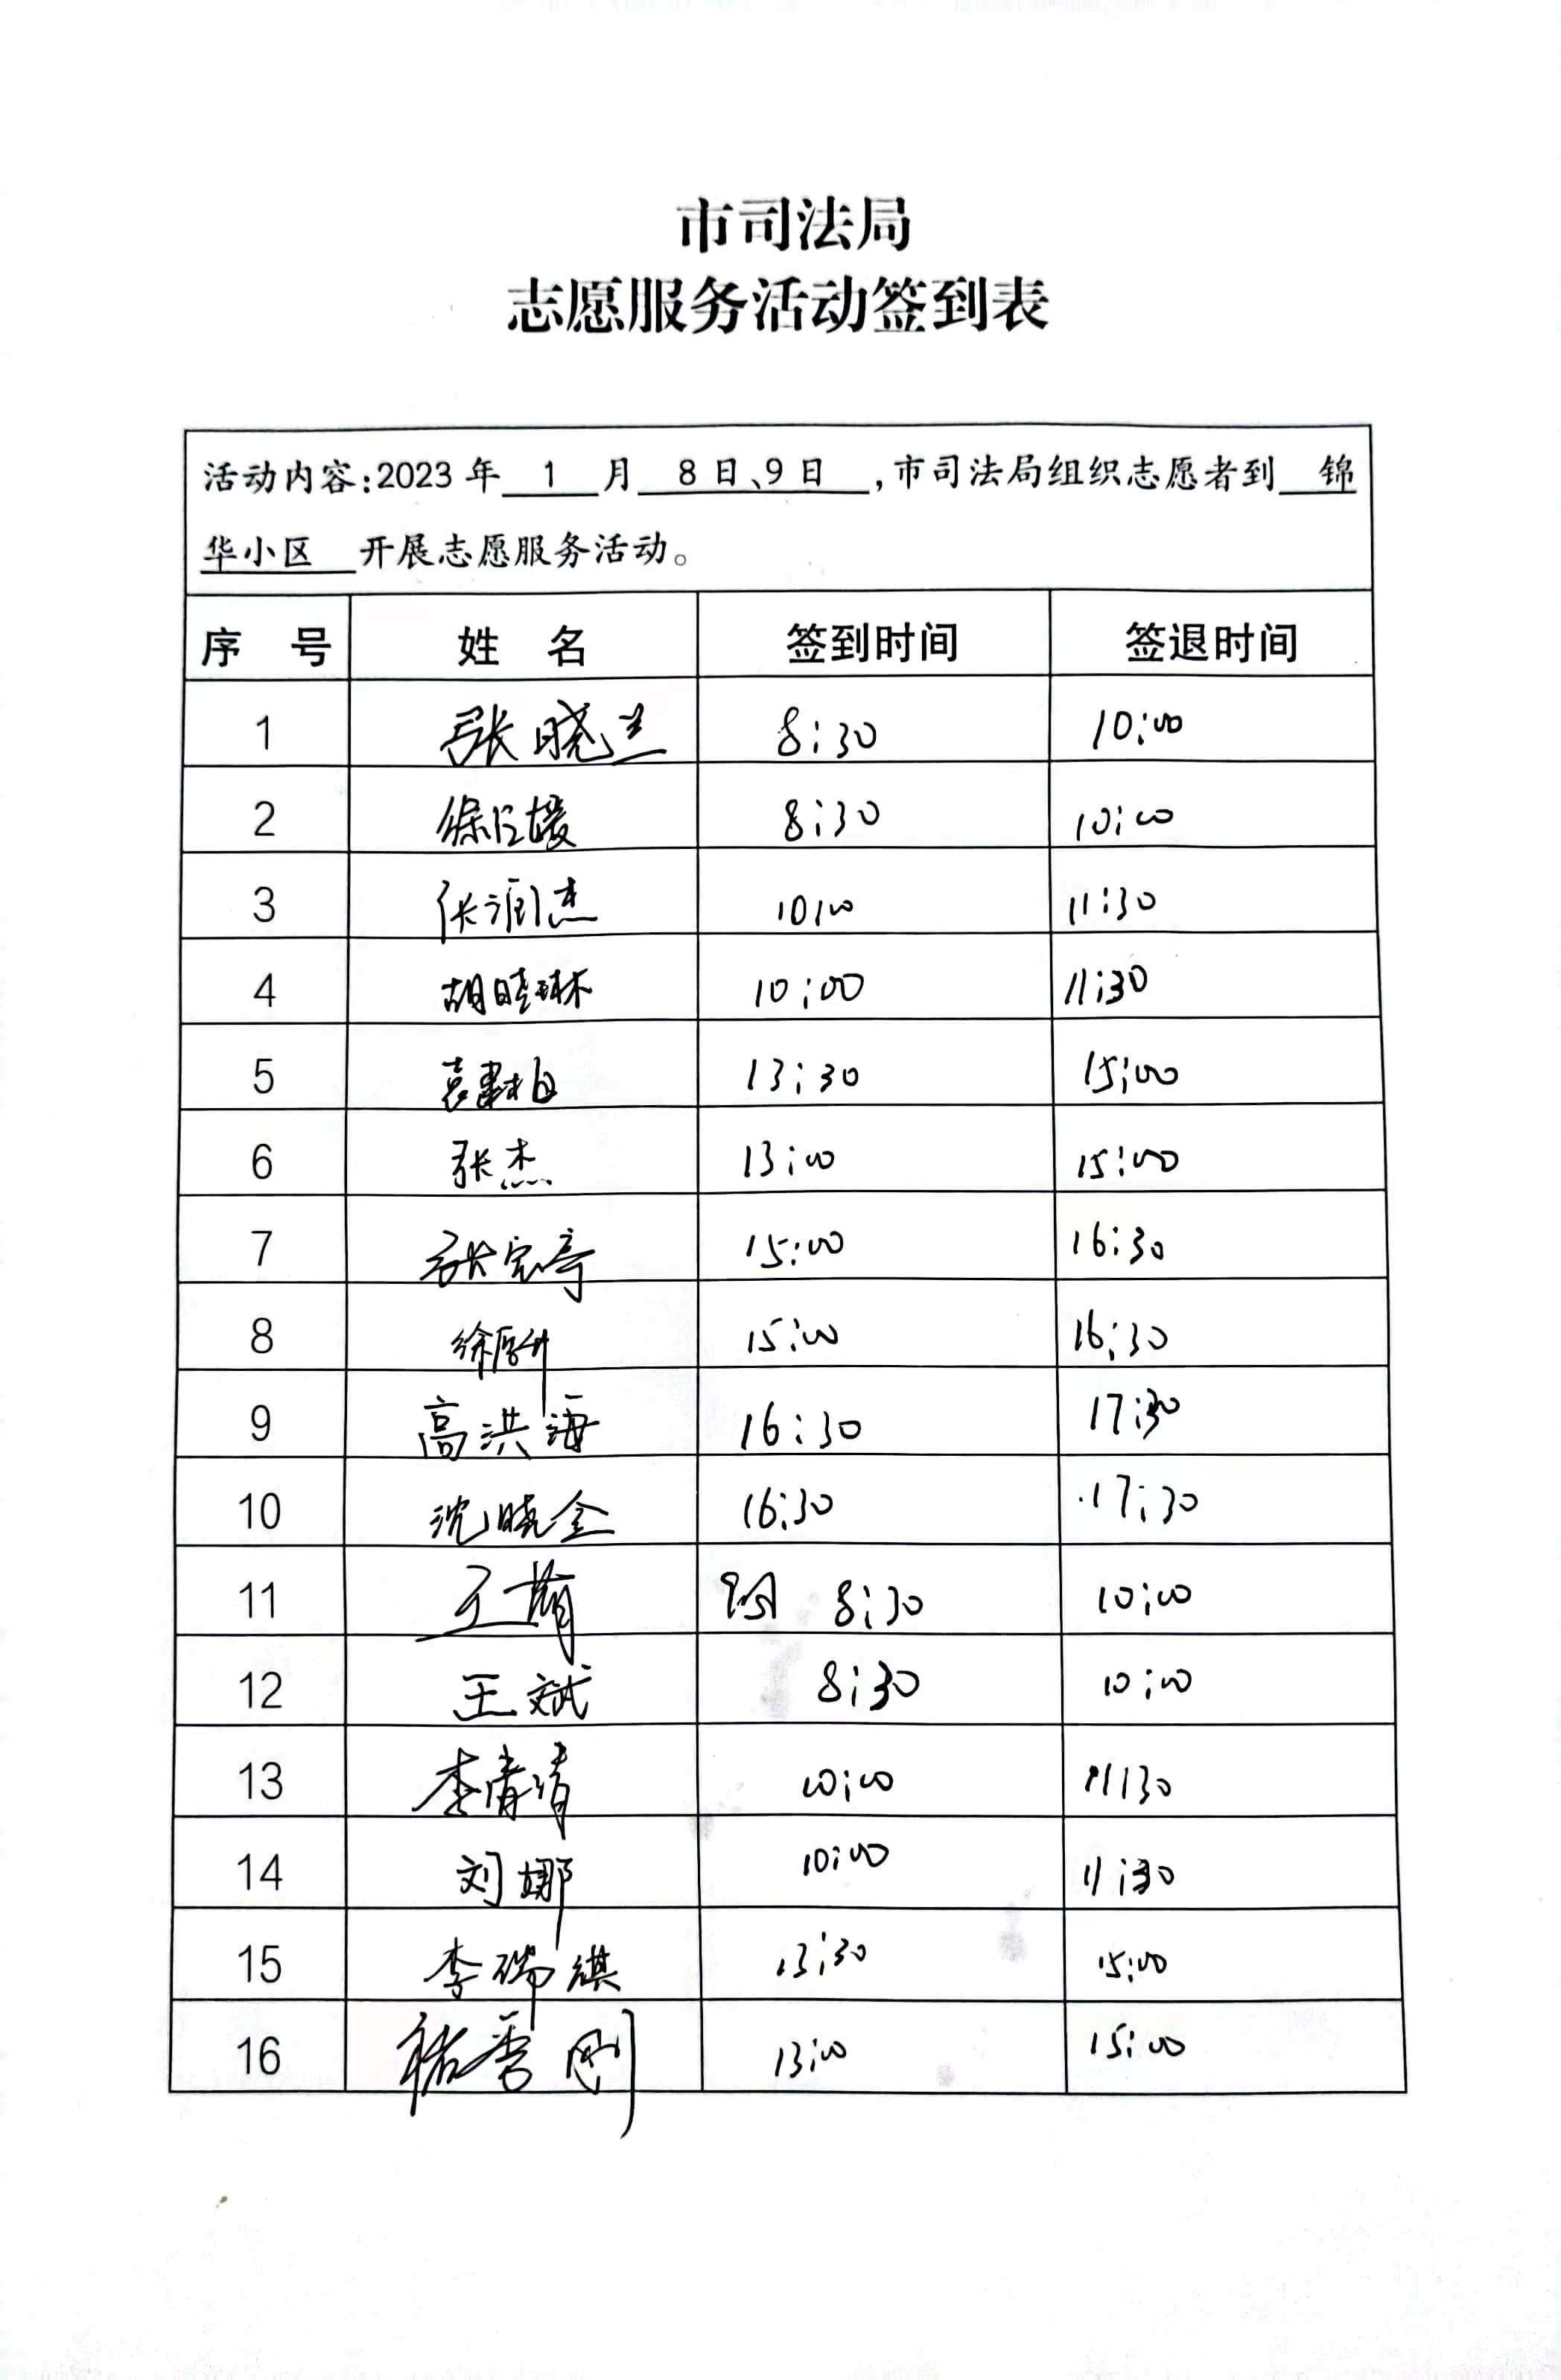 市司法局
志愿服务活动签到表
活动内容:2023年 1 月 8日、9日 ,市司法局组织志愿者到 锦
华小区 开展志愿服务活动。
序 号 姓 名 签到时间 签退时间
1 张晓兰 8:30 10:00
2 8:30 10:00
3 张润杰 10:00 11:30
4 胡晓琳 10:00 11:30
5 13:30 15:00
6 张杰 13:00 15:00
7 张宝亭 15:00 16:30
8 15:00 16:30
9 高洪海 16:30 17:30
10 沈晓金 16:30 17:30
11 8:30 10:00
12 王斌 8:30 10:00
13 李倩倩 10:00 11:30
14 刘娜 10:00 11:30
15 李瑞祺 13:30 15:00
16 13:00 15:00